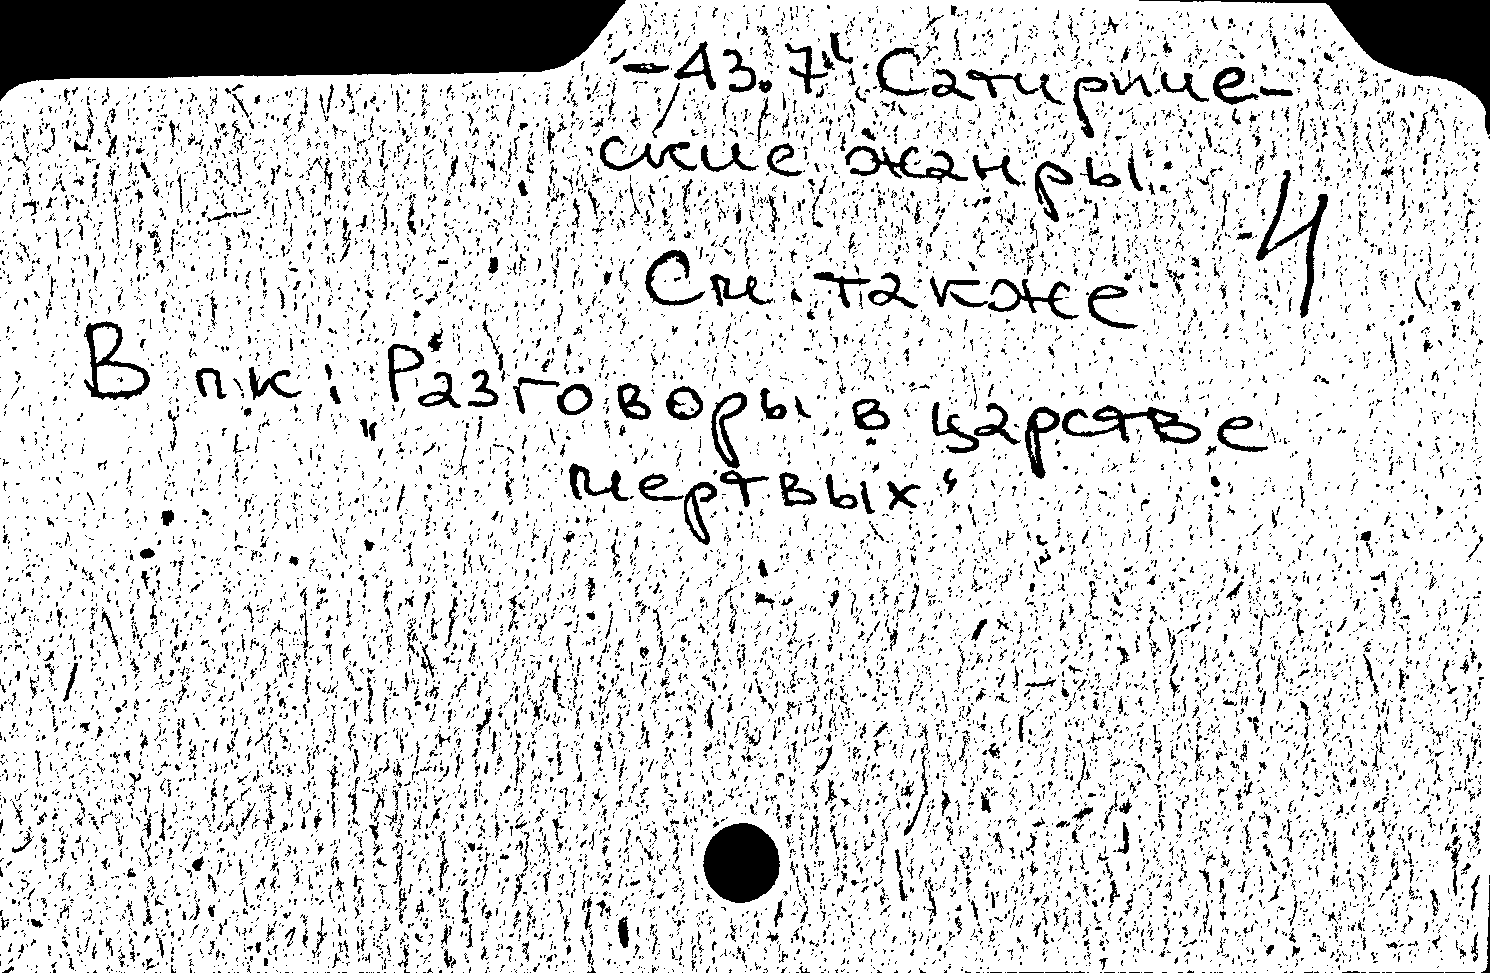 -43.7 Сатириче-
ские жанры.
-4
См. также
В пк: "Разговоры в царстве
мертвых"